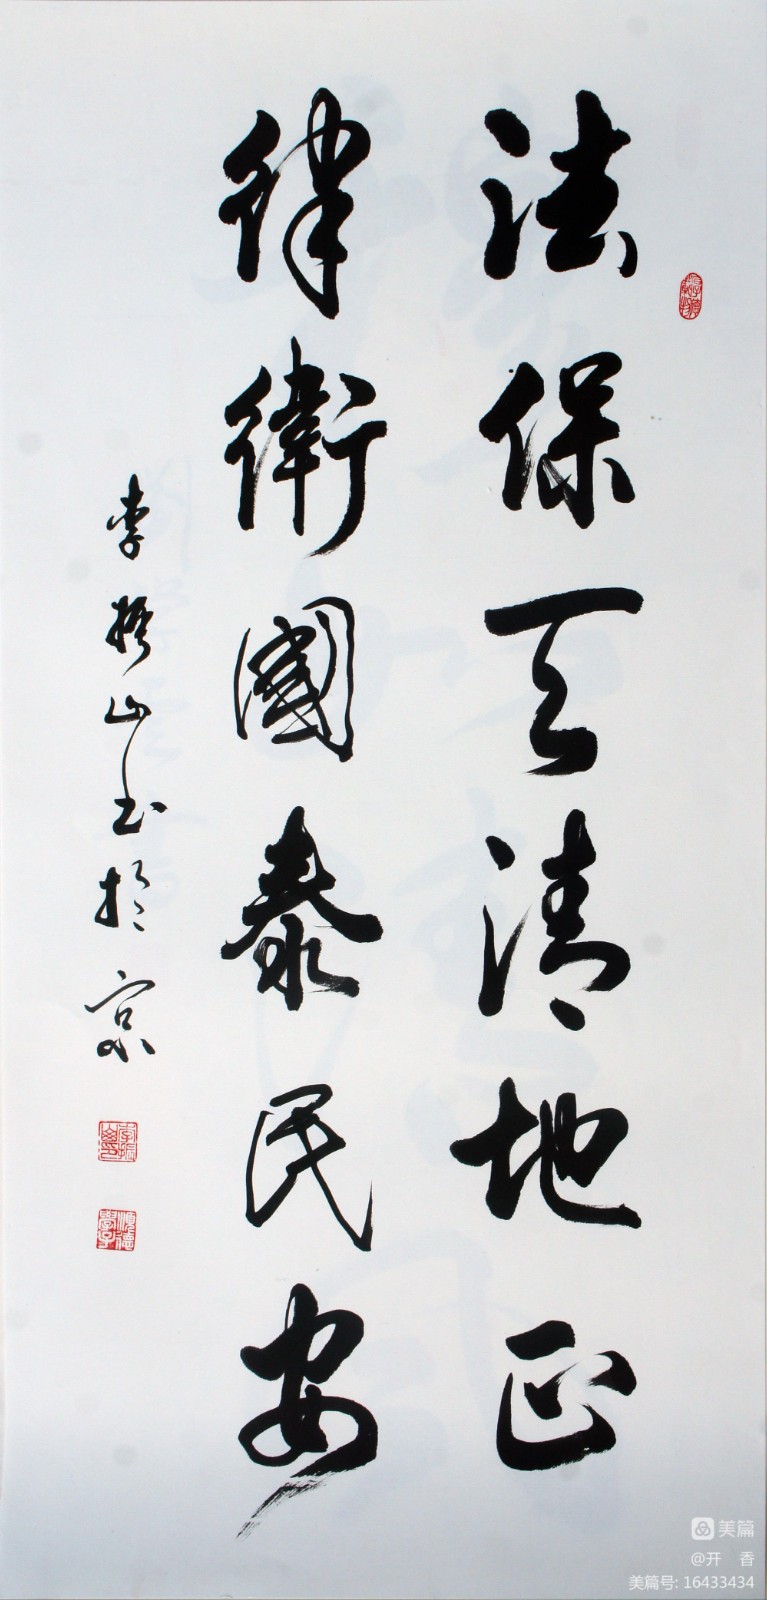 法保天清地正
律衛國泰民安
李振山书於京
美篇
@开 香
美篇号: 16433434